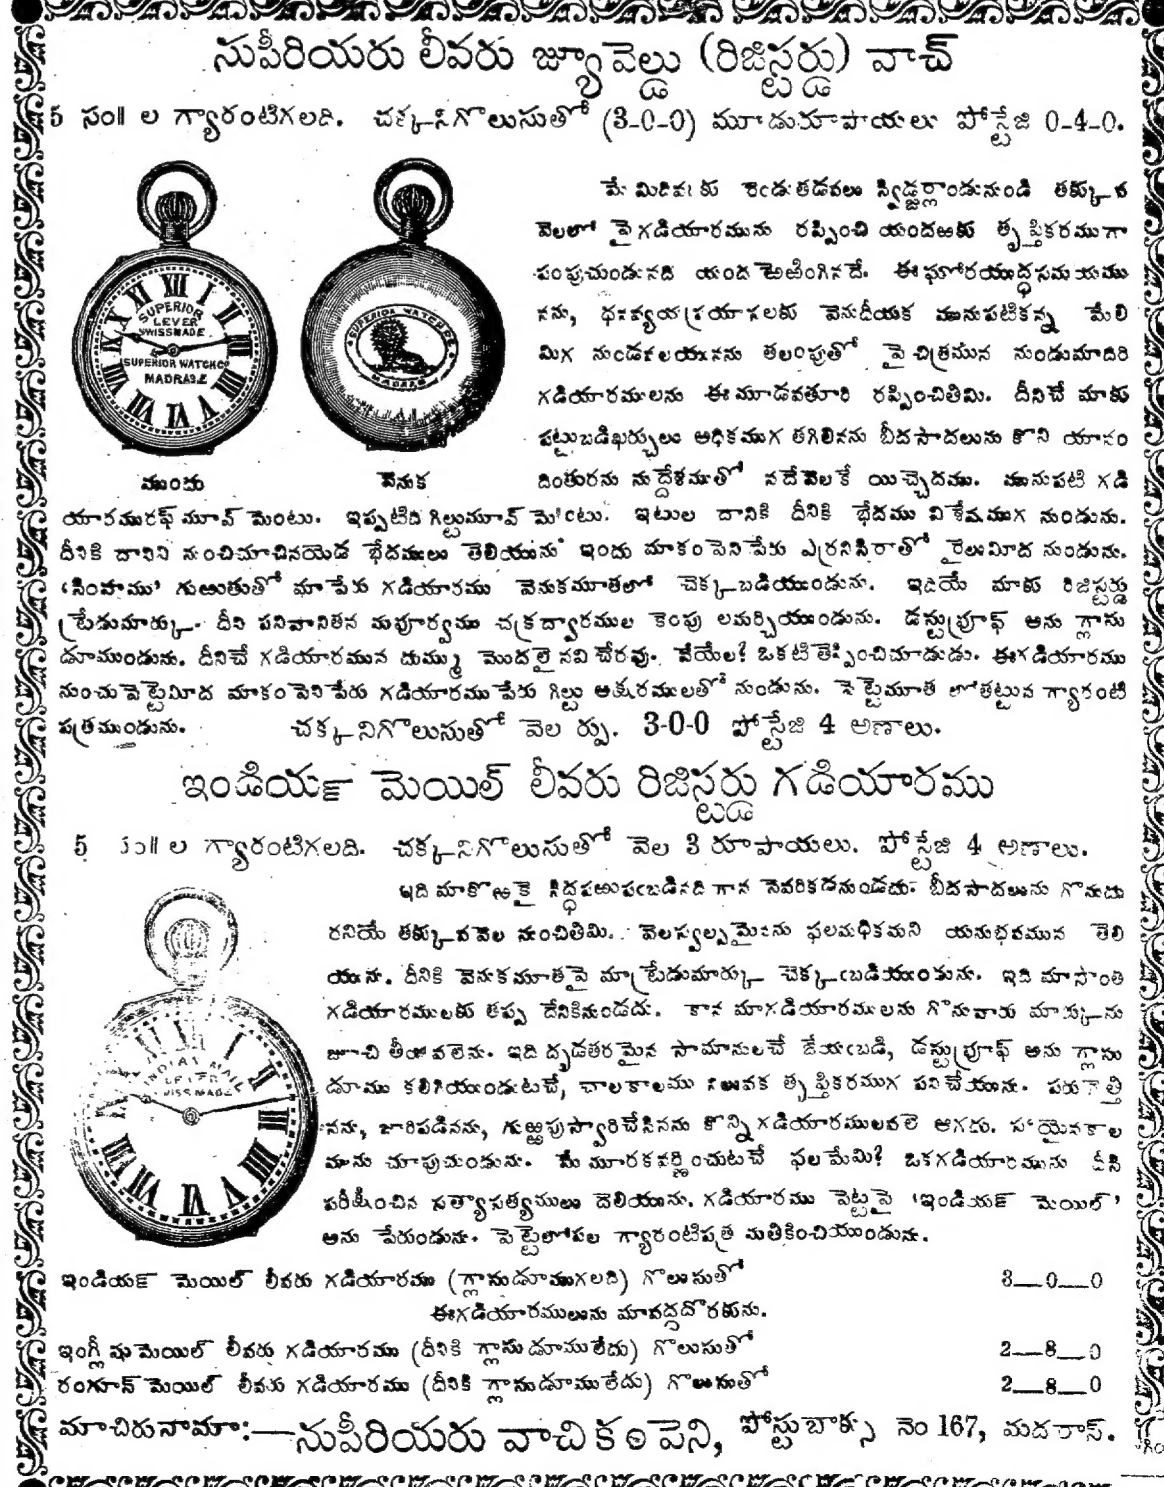 సుపీరియరు లీవరు జ్యూవెల్డు (రిజిస్టర్డు) వాచ్
5 సం॥ ల గ్యారంటిగలది. చక్కనిగొలుసుతో (3-0-0) మూడురూపాయలు పోస్టేజి 0-4-0.
మేమిదివఱకు రెండుతడవలు స్విడ్జర్లాండునుండి తక్కువ
వెలలో పై గడియారమును రప్పించి యందఱకు తృప్తికరముగా
పంపుచుండునది యంద ఱెఱింగినదే. ఈఘోరయుద్ధసమయము
నను, ధనవ్యయప్రయాసలకు వెనుదీయక మునుపటికన్న మేలి
మిగ నుండవలయునను తలంపుతో పై చిత్రమున నుండుమాదిరి
గడియారములను ఈమూడవతూరి రప్పించితిమి. దీనిచే మాకు
పట్టుబడిఖర్చులు అధికముగ తగిలినను బీదసాదలును కొని యానం
దింతురను నుద్దేశముతో నదేవెలకే యిచ్చెదము. మునుపటి గడి
SUPERIOR
LEVER
SWISSMADE
SUPERIOR WATCH CO
MADRAS
SUPERIOR WATCH CO.
MADRAS
ముందు వెనుక
యారమురఫ్ మూవ్ మెంటు. ఇప్పటిది గిల్టుమూవ్ మెంటు. ఇటుల దానికి దీనికి భేదము విశేషముగ నుండును.
దీనికి దానిని నుంచిచూచినయెడ భేదములు తెలియును ఇందు మాకంపెనిపేరు ఎర్రనిసిరాతో రైలుమీద నుండును.
‘సింహము’ గుఱుతుతో మాపేరు గడియారము వెనుకమూతలో చెక్కబడియుండును. ఇదియే మాకు రిజిస్టర్డు
ట్రేడుమార్కు. దీని పనివానితన మపూర్వము చక్రద్వారముల కెంపు లమర్చియుండును. డస్టుప్రూఫ్ అను గ్లాసు
డూముండును. దీనిచే గడియారమున దుమ్ము మొదలైనవి చేరవు. వేయేల? ఒకటితెప్పించిచూడుడు. ఈగడియారము
నుంచుపెట్టెమీద మాకంపెనిపేరు గడియారముపేరు గిల్టు అక్షరములతో నుండును. పెట్టెమూత లోతట్టున గ్యారంటి
పత్రముండును. చక్కనిగొలుసుతో వెల ర్పు. 3-0-0 పోస్టేజి 4 అణాలు.
ఇండియన్ మెయిల్ లీవరు రిజిస్టర్డు గడియారము
5 సం॥ ల గ్యారంటిగలది. చక్కనిగొలుసుతో వెల 3 రూపాయలు. పోస్టేజి 4 అణాలు.
ఇది మాకొఱకై సిద్ధపఱుపఁబడినది గాన నెవరికడనుండదు. బీదసాదలును గొనుదు
రనియే తక్కువవెల నుంచితిమి. వెలస్వల్పమైనను ఫలమధికమని యనుభవమున తెలి
యును. దీనికి వెనుకమూతపై మాట్రేడుమార్కు చెక్కఁబడియుండును. ఇది మాసొంతి
గడియారములకు తప్ప దేనికినుండదు. కాన మాగడియారములను గొనువారు మార్కును
జూచి తీయవలెను. ఇది దృడతరమైన సామానులచే జేయఁబడి, డస్టుప్రూఫ్ అను గ్లాసు
డూము కలిగియుండుటచే, చాలకాలము నిలువక తృప్తికరముగ పనిచేయును. పరుగెత్తి
నను, జారిపడినను, గుఱ్ఱపుస్వారిచేసినను కొన్నిగడియారములవలె ఆగదు. సరియైనకాల
మును చూపుచుండును. మే మూరకవర్ణించుటచే ఫలమేమి? ఒకగడియారమును దీసి
పరీక్షించిన సత్యాసత్యములు దెలియును. గడియారము పెట్టెపై ‘ఇండియన్ మెయిల్’
అను పేరుండును. పెట్టెలోపల గ్యారంటిపత్ర మతికించియుండును.
INDIAN MAIL
LEVER
SWISS MADE
ఇండియన్ మెయిల్ లీవరు గడియారము (గ్లాసుడూముగలది) గొలుసుతో 3—0—0
ఈగడియారములును మావద్దదొరకును.
ఇంగ్లీషుమెయిల్ లీవరు గడియారము (దీనికి గ్లాసుడూములేదు) గొలుసుతో 2—8—0
రంగూన్ మెయిల్ లీవరు గడియారము (దీనికి గ్లాసుడూములేదు) గొలుసుతో 2—8—0
మాచిరునామా:—సుపీరియరు వాచికంపెని, పోస్టుబాక్సు నెం 167, మదరాస్.